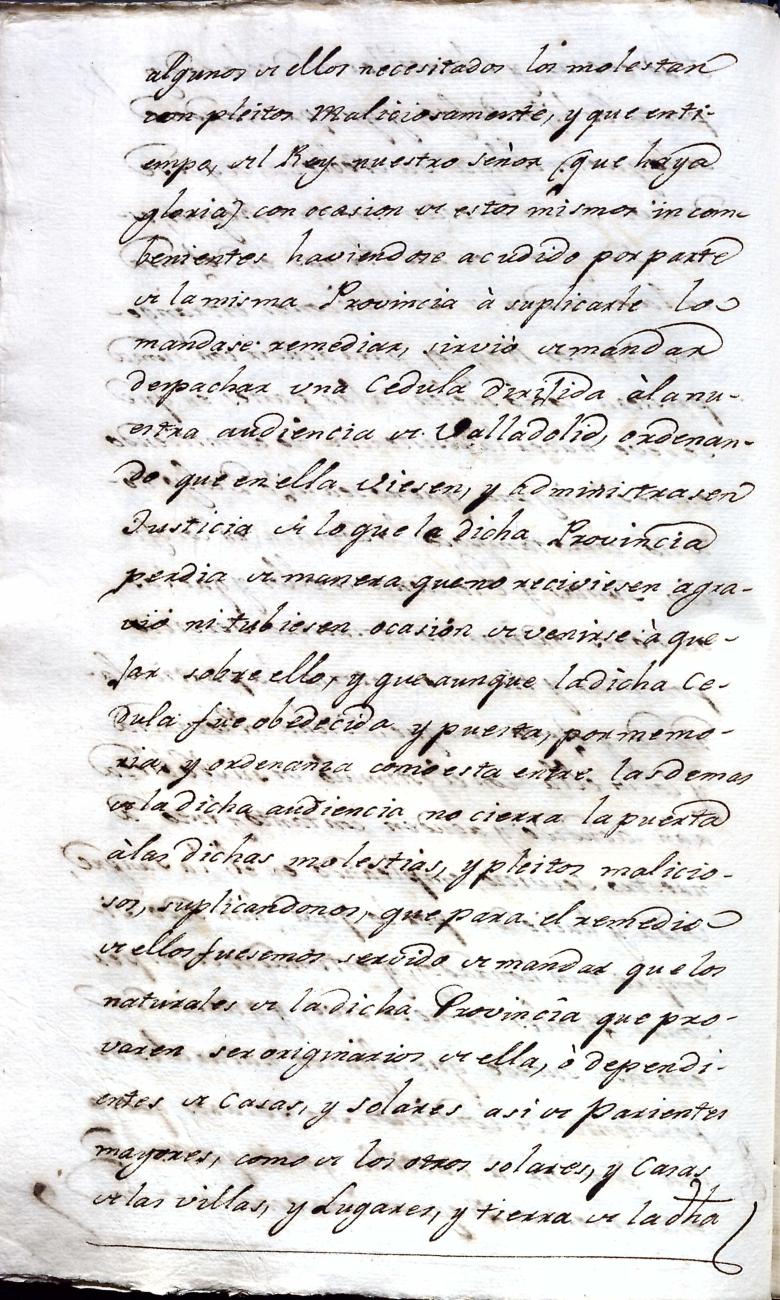 algunos de ellos necesitados los molestan
con pleitos Maliciosamente, y que en ti-
empo, del Rey nuestro señor (que haya
gloria) con ocasion de estos mismos incom-
benientes haviendose acudido por parte
de la misma Provincia à suplicarle lo
mandase remediar, sirviò de mandar
despachar una Cedula dirijida àla nu-
estra audiencia de Valladolid, ordenan-
do que en ella viesen, y administrasen
Justicia de lo que la dicha Provincia
perdia de manera que no reciviesen agra-
vio ni tubiesen ocasion de venirse à que-
jar sobre ello, y que aunque la dicha Ce-
dula fue obedecida y puesta, por memo-
ria, y ordenanza como esta entre las demas
de la dicha audiencia no cierra la puerta
àlas dichas molestias, y pleitos malicio-
sos, suplicandonos, que para el remedio
de ellos fuesemos servido de mandar que los
naturales de la dicha Provincia que pro-
varen ser originarios de ella, ò dependi-
entes de Casas, y solares asi de Parientes
mayores, como de los otros solares, y Casas
de las villas, y Lugares, y tierra de la dha